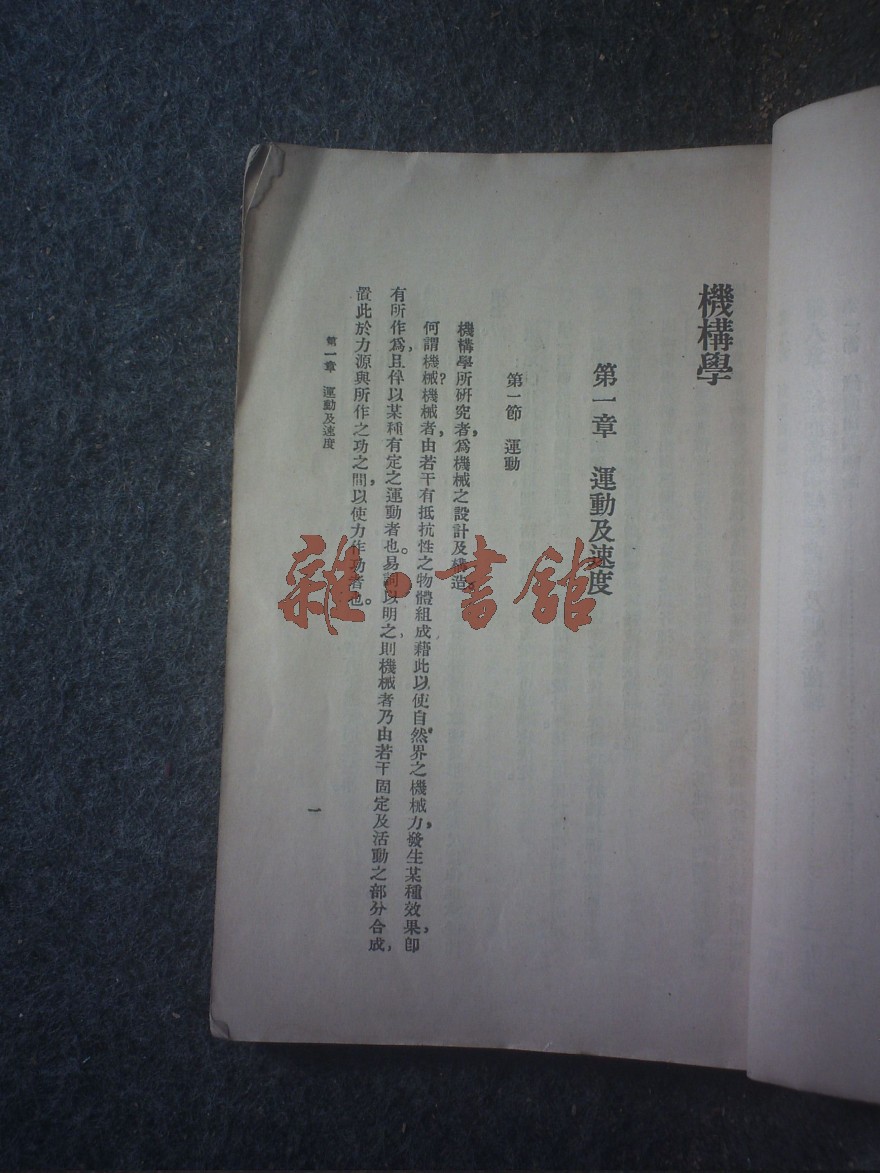 機構學
第一章　運動及速度
第一節　運動
機構學所研究者，爲機械之設計及構造。
何謂機械？機械者，由若干有抵抗性之物體組成，藉此以使自然界之機械力，發生某種效果，卽
有所作爲，且伴以某種有定之運動者也。易詞以明之，則機械者乃由若干固定及活動之部分合成，
置此於力源與所作之功之間，以使力作功者也。
第一章　運動及速度
一
雜·書館